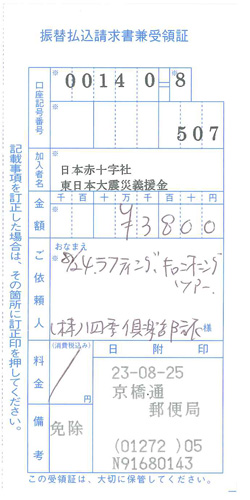 振替払込請求書兼受領証
口座記号番号
00140 8
507
加入者名
日本赤十字社
東日本大震災義援金
金額
千 百 十 万 千 百 十 円
¥3800
ご依頼人
おなまえ
8/24.ラフティング、キャニオニング
ツアー
(株)四季倶楽部 様
料金
(消費税込み)
円
日附印
23-08-25
京橋通
郵便局
(01272)05
N91680143
備考
免除
記載事項を訂正した場合は、その箇所に訂正印を押してください。
この受領証は、大切に保管してください。